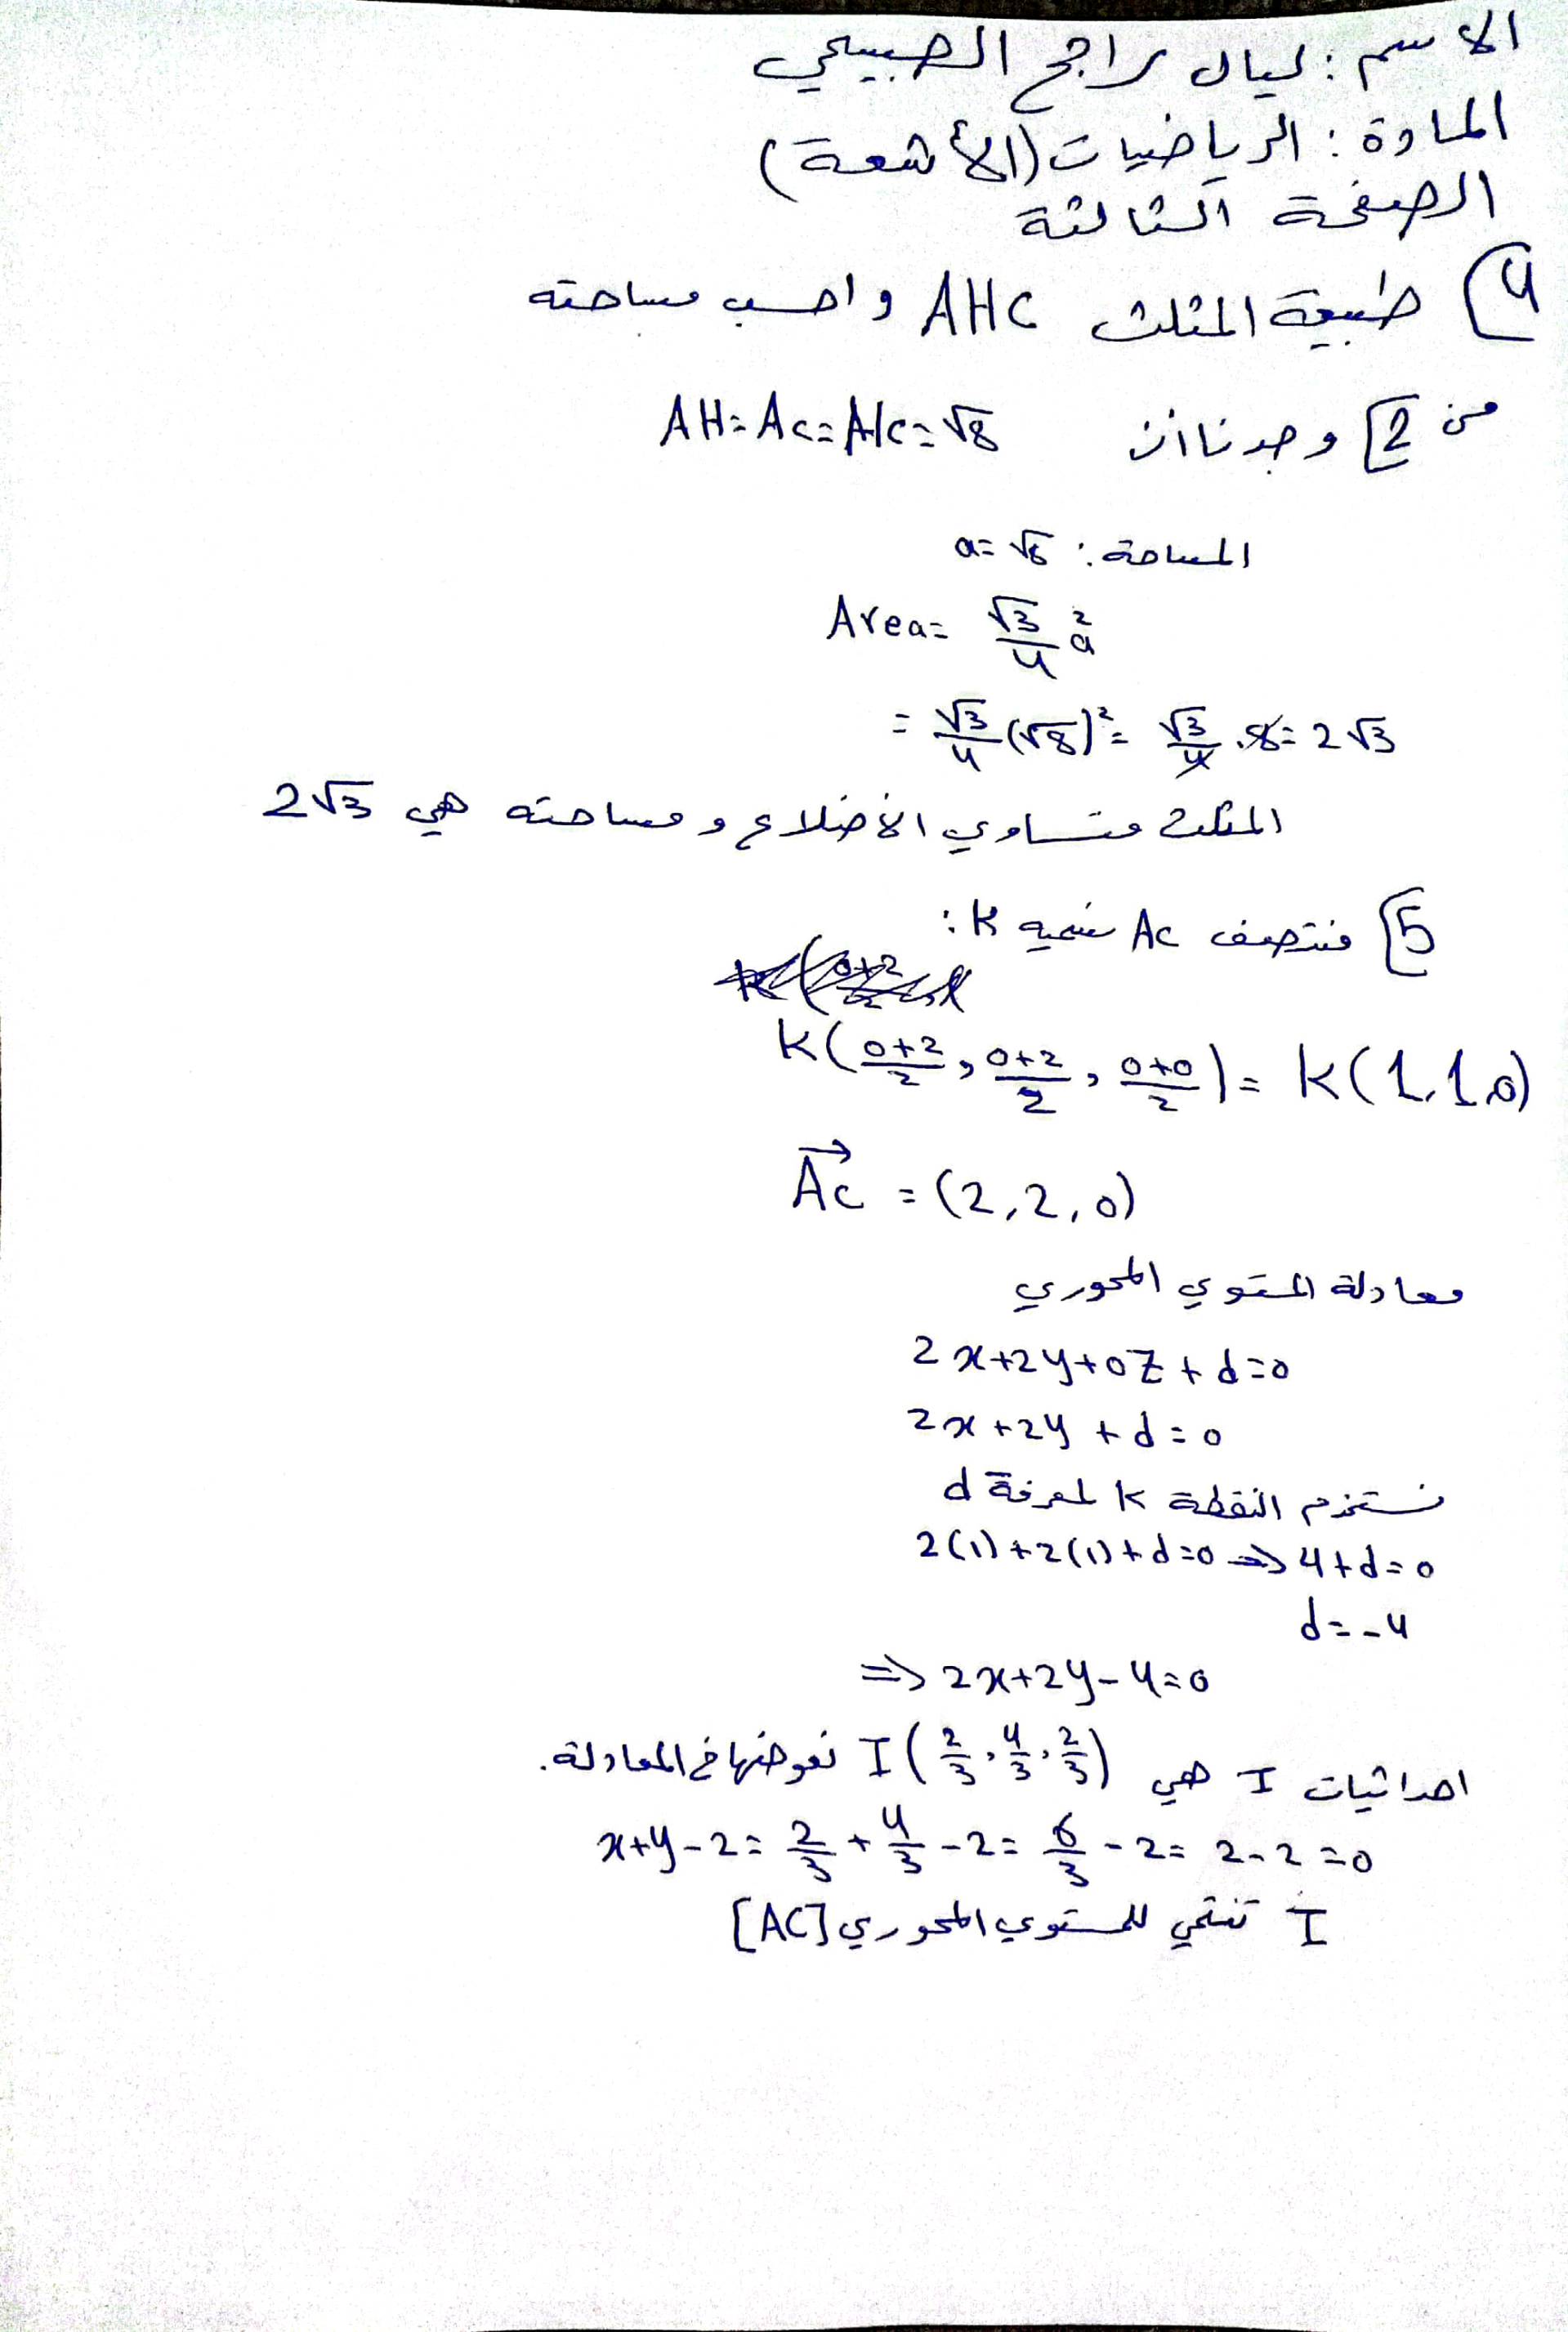 الاسم : ليال راجح الصبيحي
المادة : الرياضيات (الأشعة)
الصفحة الثالثة
4] طبيعة المثلث AHC و احسب مساحته
من 2] وجدنا أن AH = AC = HC = √8
المساحة : a = √8
Area = √3/4 a²
= √3/4 (√8)² = √3/4 . 8 = 2√3
المثلث متساوي الأضلاع و مساحته هي 2√3
5] منتصف AC نسميه K :
K(0+2/2 , 0+2/2 , 0+0/2) = K(1,1,0)
AC→ = (2,2,0)
معادلة المستوي المحوري
2x+2y+0z+d=0
2x+2y+d=0
نستخدم النقطة K لمعرفة d
2(1)+2(1)+d=0 => 4+d=0
d=-4
=> 2x+2y-4=0
احداثيات I هي I(2/3, 4/3, 2/3) نعوضها في المعادلة.
x+y-2 = 2/3 + 4/3 - 2 = 6/3 - 2 = 2-2 = 0
I تنتمي للمستوي المحوري [AC]